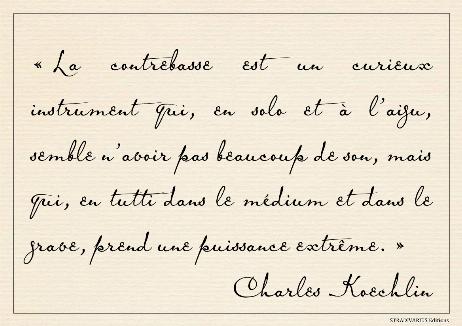 « La contrebasse est un curieux
instrument qui, en solo et à l'aigu,
semble n'avoir pas beaucoup de son, mais
qui, en tutti dans le médium et dans le
grave, prend une puissance extrême. »
Charles Koechlin
STRADIVARIUS Editions